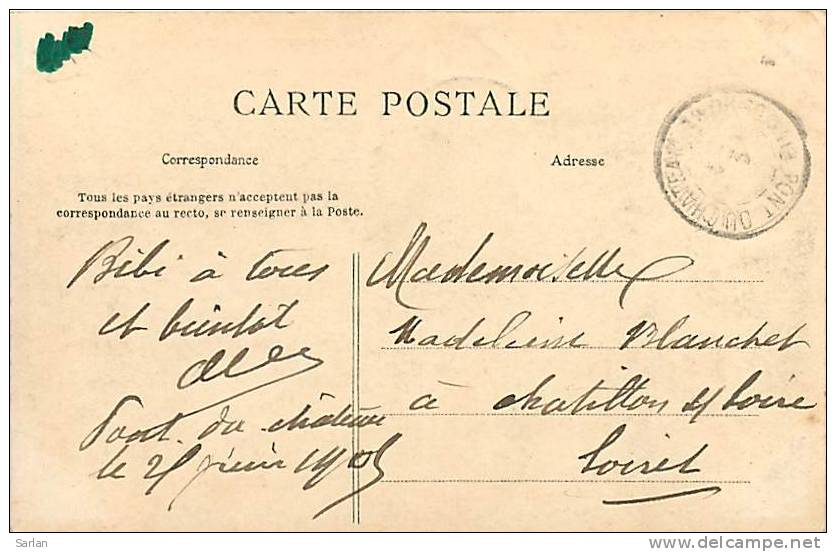 CARTE POSTALE
Correspondance
Adresse
Tous les pays étrangers n'acceptent pas la
correspondance au recto, se renseigner à la Poste.
PONT DU CHATEAU
Bibi à tous
et bientot
Mademoiselle
Madeleine Blanchet
à chatillon s/ Loire
Loiret
Pont du château
le 1905
Sarlan
www.delcampe.net